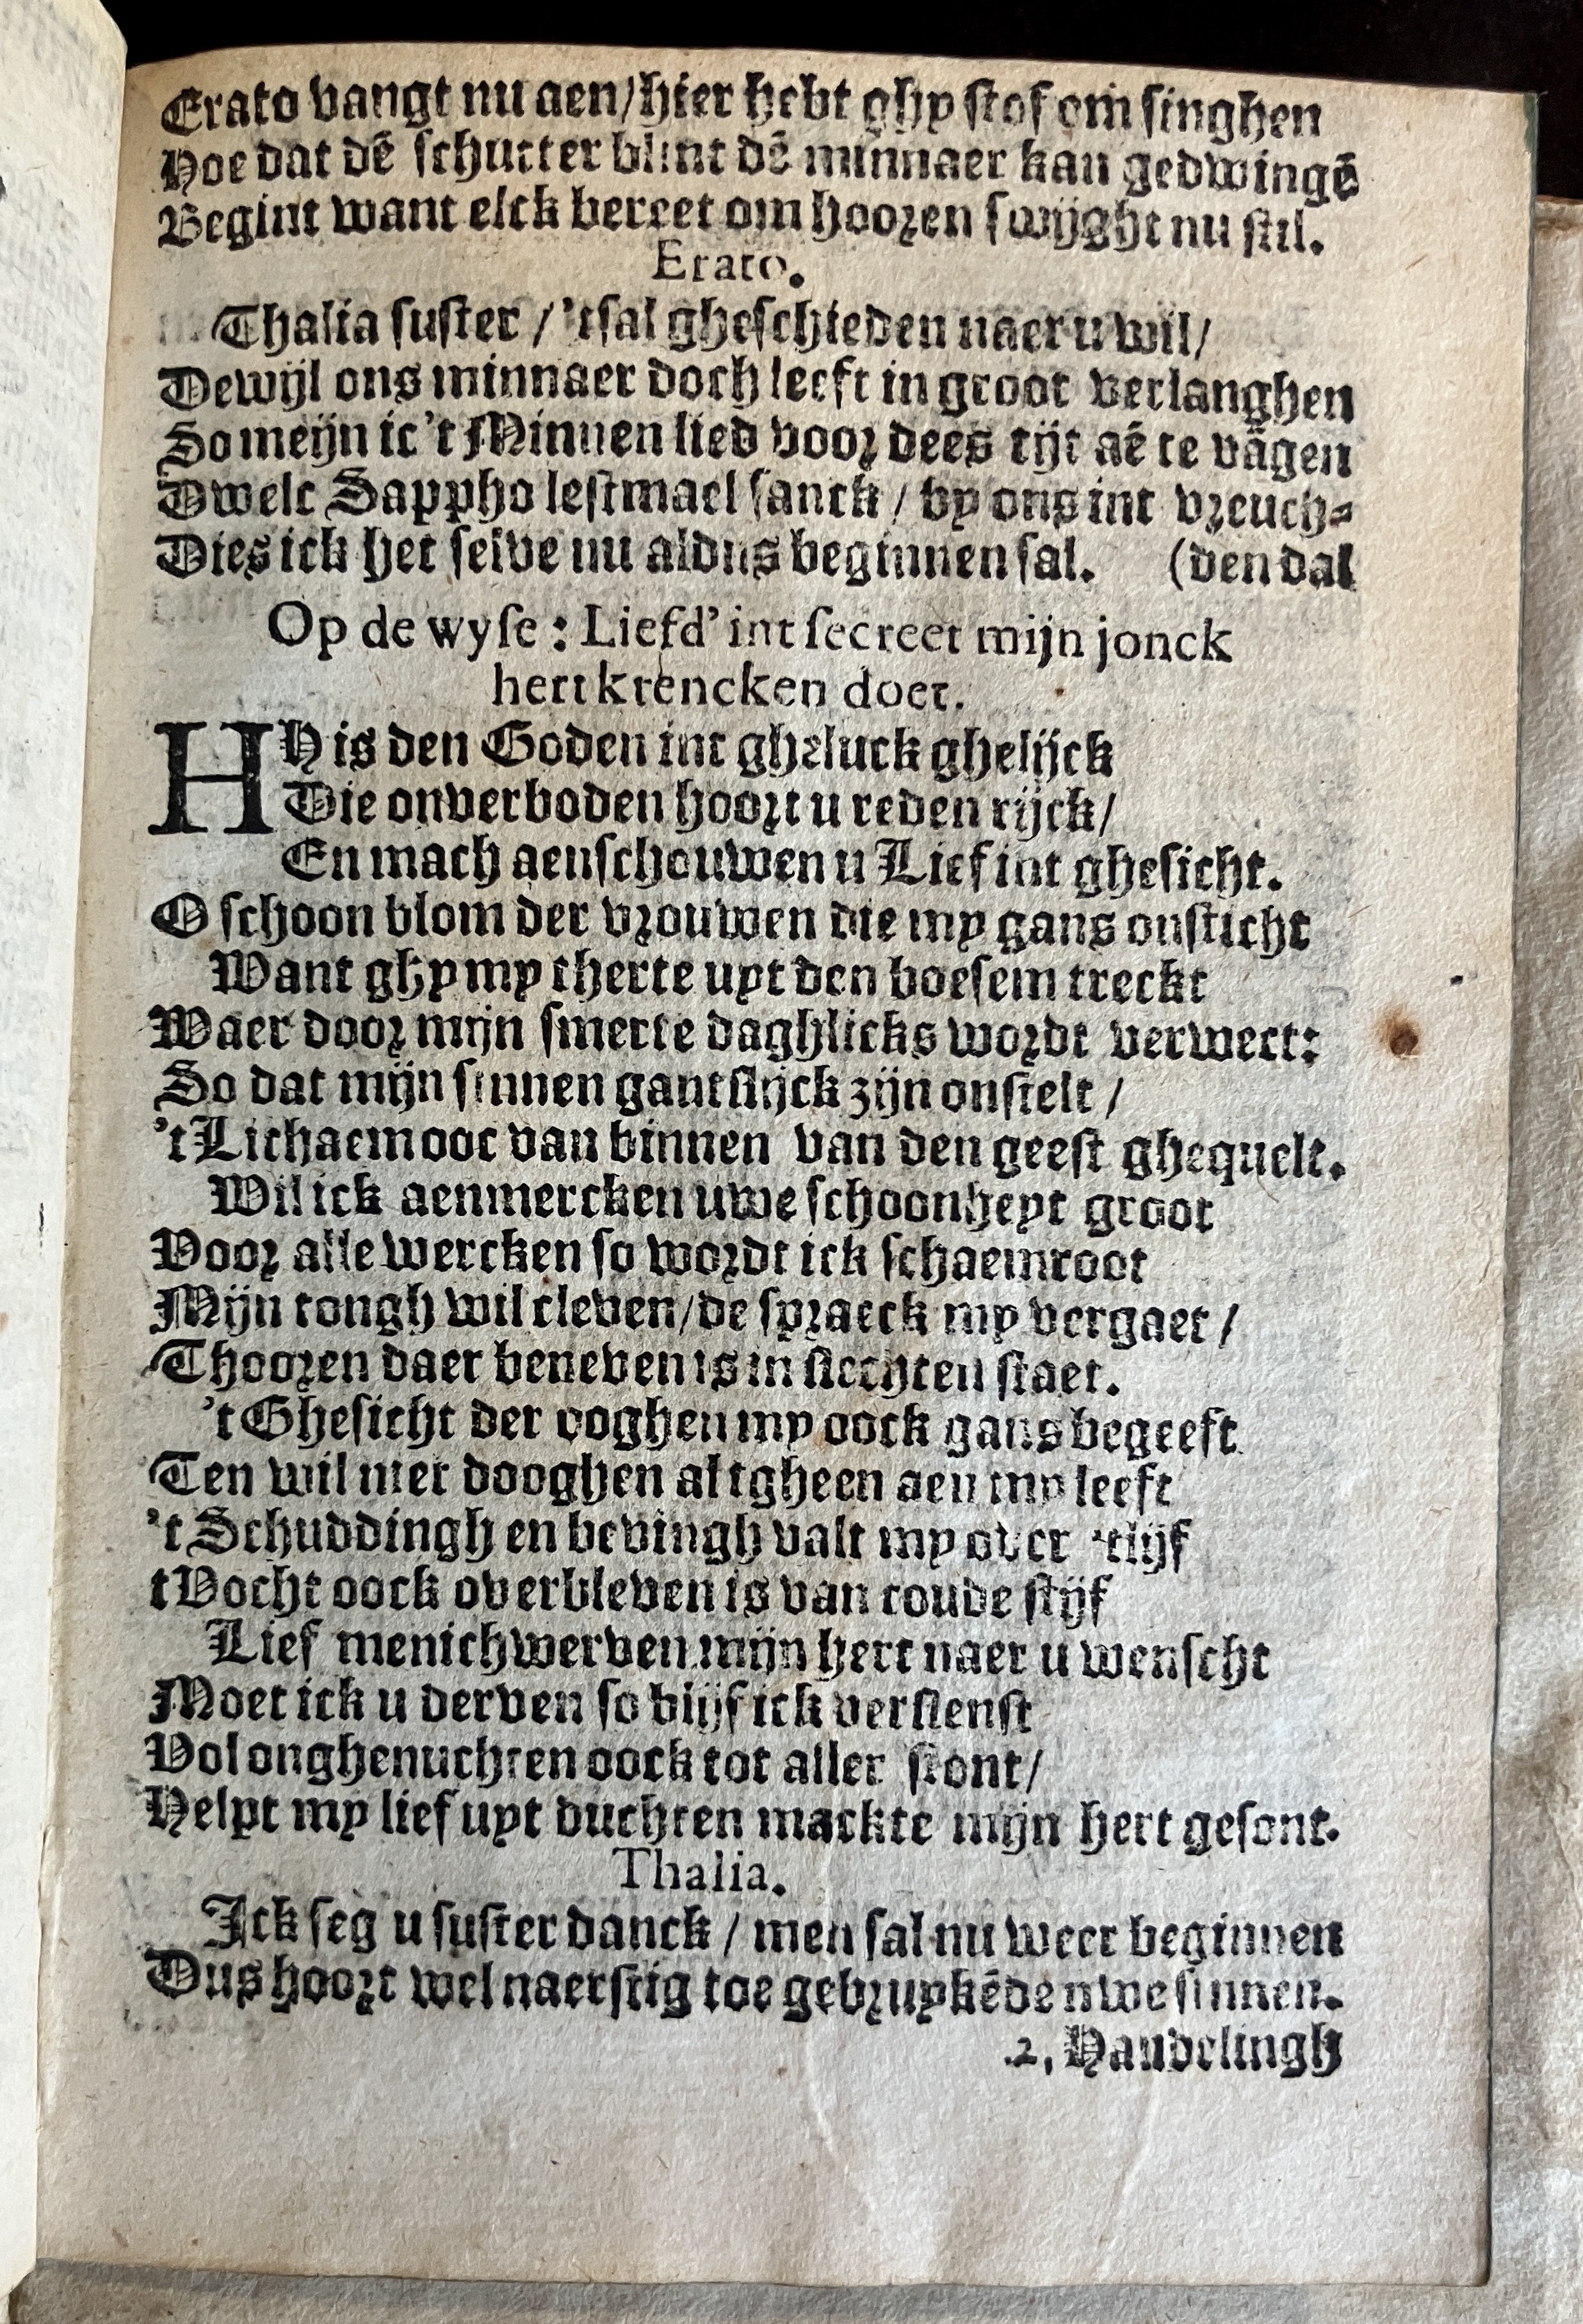 Erato vangt nu aen/hier hebt ghy stof om singhen
Hoe dat dē schutter blint dē minnaer kan gedwingē
Begint want elck bereet om hoozen swijght nu stil.
Erato.
Thalia suster / 'tsal gheschieden naer u wil/
Dewijl ons minnaer doch leeft in groot verlanghen
So meijn ic 't Minnen lied voor dees tijt aē te vāgen
Dwelc Sappho lestmael sanck / by ons int vreuch-
Dies ick het selve nu aldus beginnen sal. (den dal
Op de wyse : Liefd' int secreet mijn jonck
hert krencken doet.
HY is den Goden int gheluck ghelijck
Die onverboden hoort u reden rijck/
En mach aenschouwen u Lief int ghesicht.
O schoon blom der vrouwen die my gans onsticht
Want ghy my therte uyt den boesem treckt
Waer door mijn smerte daghlicks wordt verwect:
So dat mijn sinnen gantslijck zijn onstelt /
't Lichaem ooc van binnen van den geest ghequelt.
Wil ick aenmercken uwe schoonheyt groot
Voor alle wercken so wordt ick schaemroot
Mijn tongh wil cleven/de spraeck my vergaet /
Thooren daer beneven is in slechten staet.
't Ghesicht der ooghen my oock gans begeeft
Ten wil niet dooghen al tgheen aen my leeft
't Schuddingh en bevingh valt my over 'tlijf
tVocht oock overbleven is van coude stijf
Lief menichwerven mijn hert naer u wenscht
Moet ick u derven so blijf ick verslenst
Vol onghenuchten oock tot aller stont/
Helpt my lief uyt duchten mackte mijn hert gesont.
Thalia.
Ick seg u suster danck / men sal nu weer beginnen
Dus hoort wel naerstig toe gebruykēde uwe sinnen.
.2, Handelingh